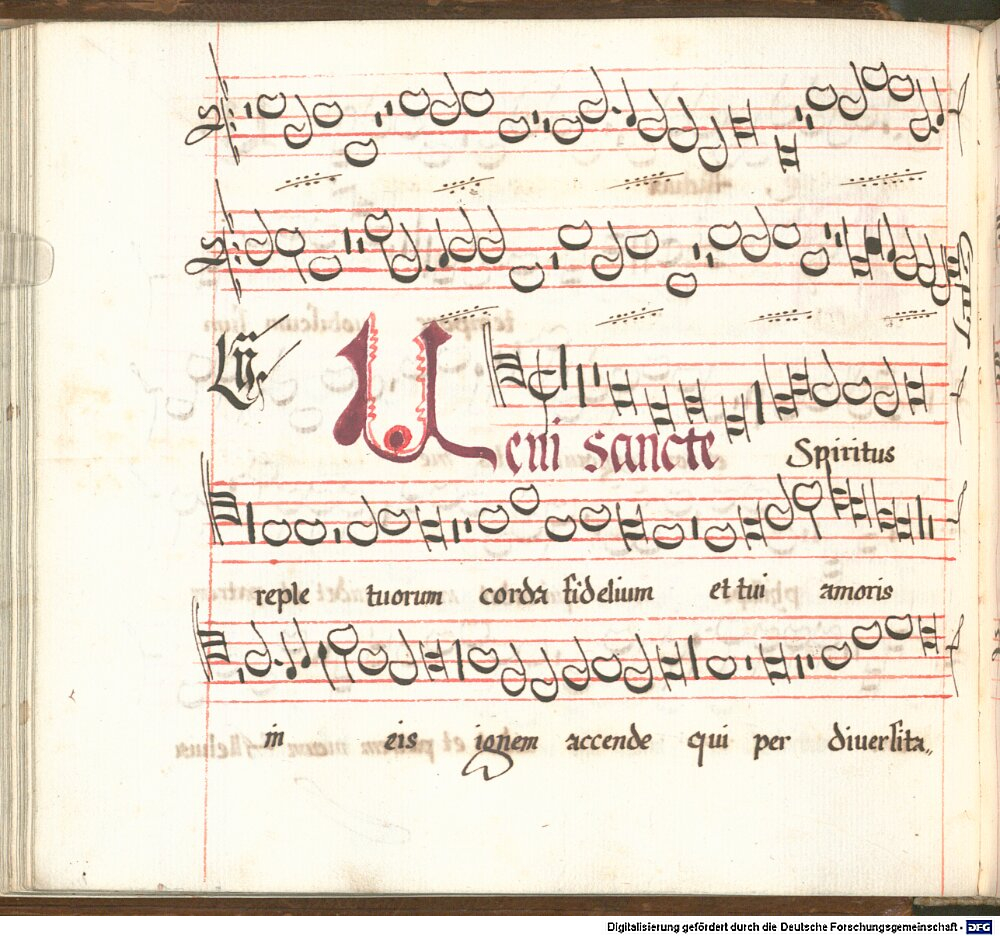 Veni sancte Spiritus
reple tuorum corda fidelium et tui amoris
in eis ignem accende qui per diuersita„
Digitalisierung gefördert durch die Deutsche Forschungsgemeinschaft - DFG